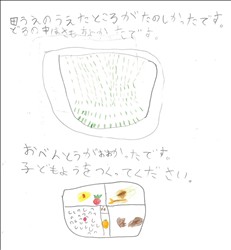 田うえのうえたところがたのしかったです。
どろの中はきもちよかったです。
おべんとうがおおかったです。
子どもようをつくってください。